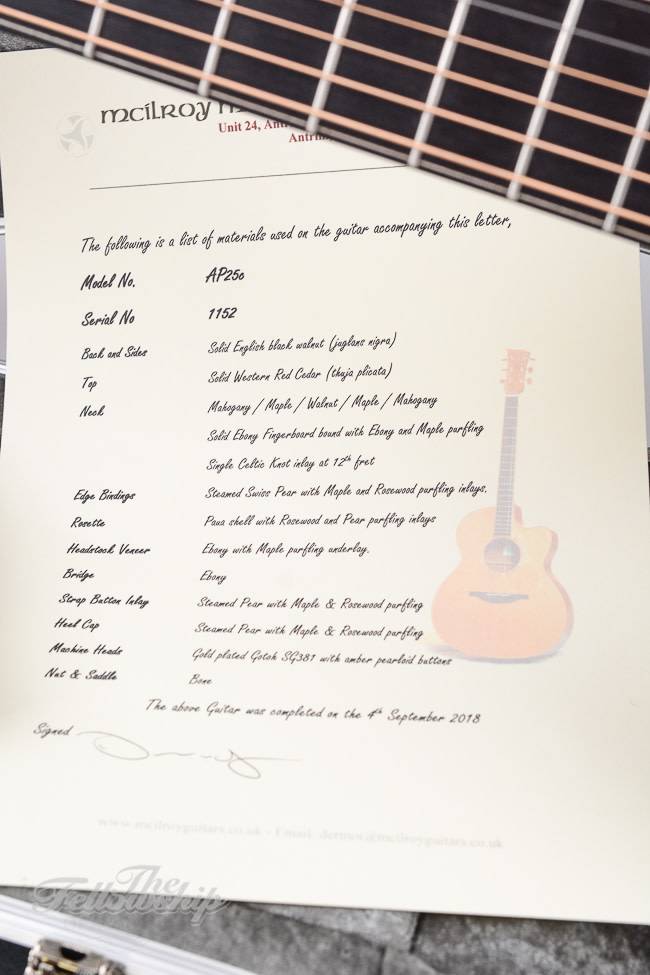 mcilroy
Unit 24,
The following is a list of materials used on the guitar accompanying this letter,
Model No. AP25c
Serial No 1152
Back and Sides Solid English black walnut (juglans nigra)
Top Solid Western Red Cedar (thuja plicata)
Neck Mahogany / Maple / Walnut / Maple / Mahogany
Solid Ebony Fingerboard bound with Ebony and Maple purfling
Single Celtic Knot inlay at 12th fret
Edge Bindings Steamed Swiss Pear with Maple and Rosewood purfling inlays.
Rosette Paua shell with Rosewood and Pear purfling inlays
Headstock Veneer Ebony with Maple purfling underlay.
Bridge Ebony
Strap Button Inlay Steamed Pear with Maple & Rosewood purfling
Heel Cap Steamed Pear with Maple & Rosewood purfling
Machine Heads Gold plated Gotoh SG381 with amber pearloid buttons
Nut & Saddle Bone
The above Guitar was completed on the 4th September 2018
Signed
www.mcilroyguitars.co.uk - Email: dermot@mcilroyguitars.co.uk
The
Fellowship